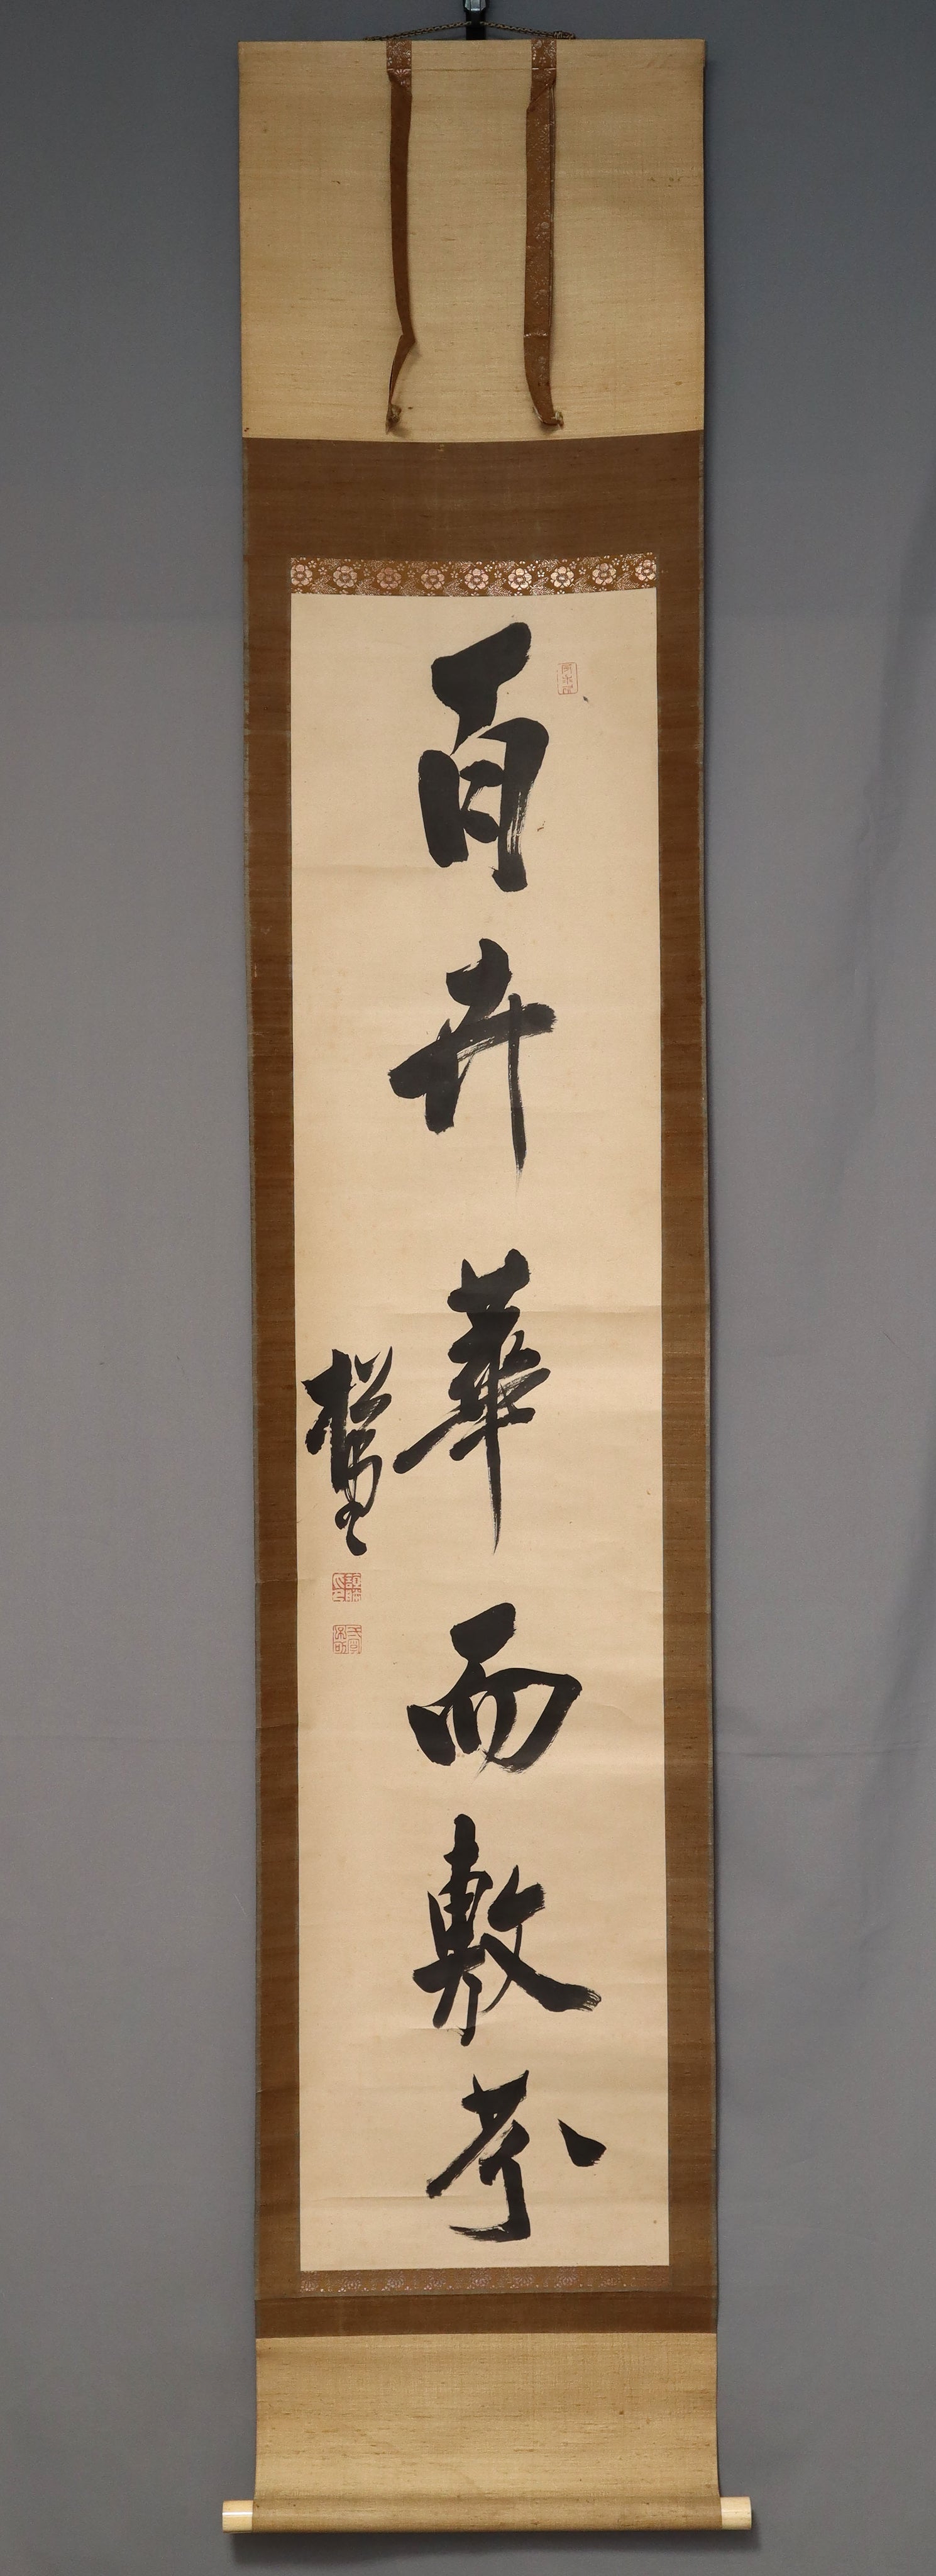 百卉華而敷芬